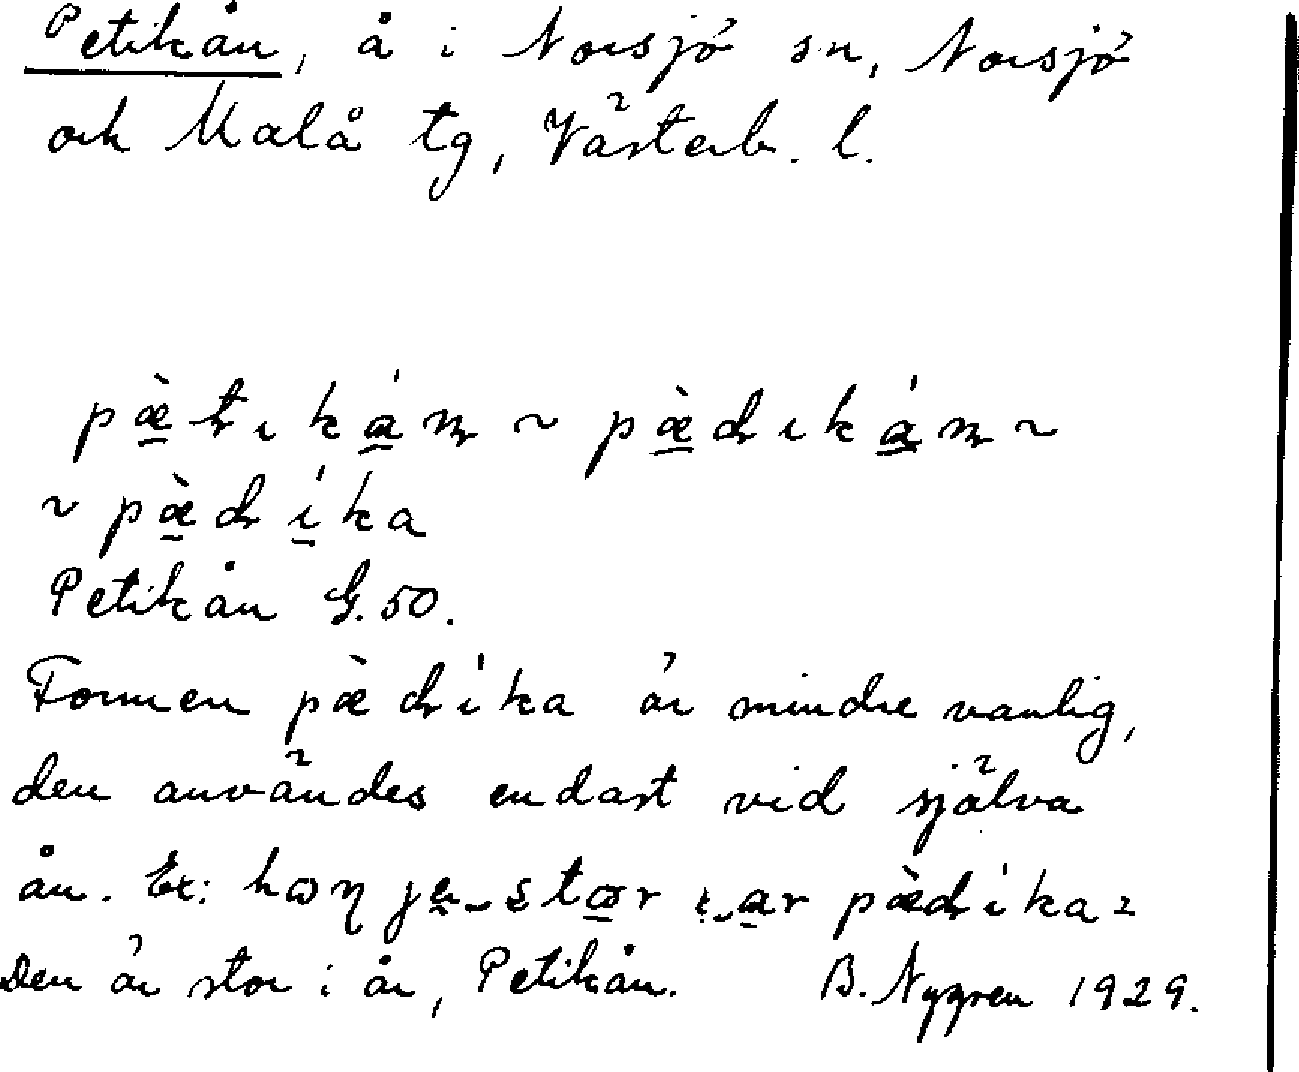 Petikån, å i Norsjö sn, Norsjö
och Malå tg, Västerb. l.
pæ̠̀tıká̠n ~ pæ̠̀dıká̠n ~
~ pæ̠̀dí̠ka
Petikån G. 50.
Formen pæ̀díka är mindre vanlig,
den användes endast vid själva
ån. Ex: pæ̀díka =
Den är stor i år, Petikån. B. Nygren 1929.